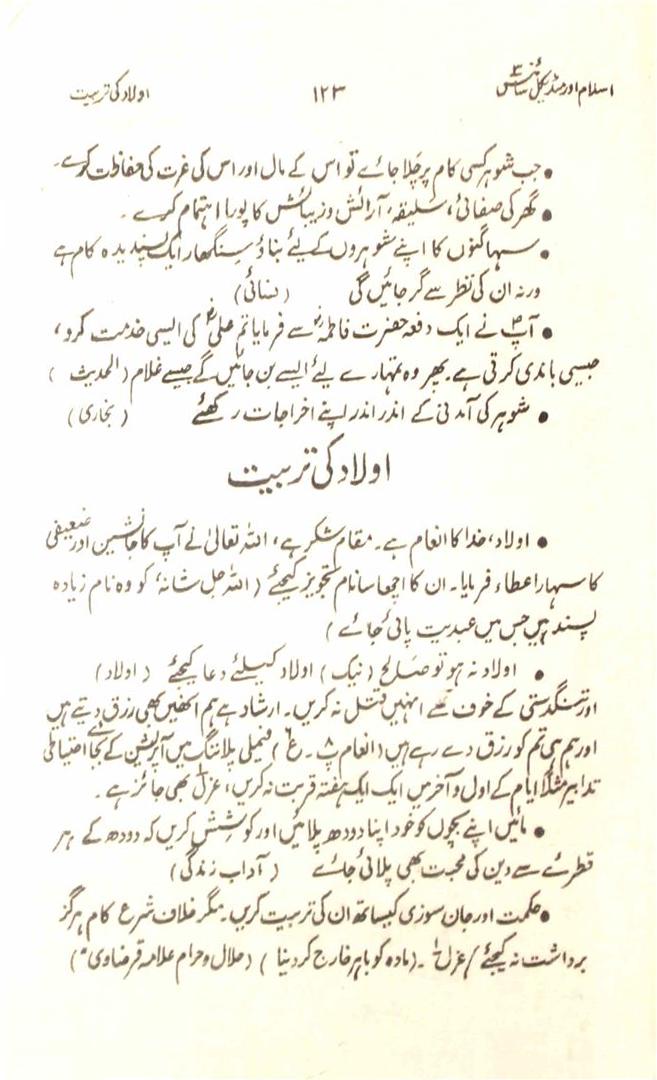 اسلام اور میڈیکل سائنس ۳
۱۲۳
اولاد کی تربیت
• جب شوہر کسی کام پر چلا جائے تو اس کے مال اور اس کی عزت کی حفاظت کرے۔
• گھر کی صفائی، سلیقہ، آرائش و زیبائش کا پورا اہتمام کرے۔
• سہاگنوں کا اپنے شوہروں کے لیئے بناؤ سنگھار ایک پسندیدہ کام ہے
ورنہ ان کی نظر سے گر جائیں گی (نسائی)
• آپؐ نے ایک دفعہ حضرت فاطمہؓ سے فرمایا تم علیؓ کی ایسی خدمت کرو،
جیسی باندی کرتی ہے۔ پھر وہ تمہارے لیئے ایسے بن جائیں گے جیسے غلام (الحدیث)
• شوہر کی آمدنی کے اندر اندر اپنے اخراجات رکھئے (بخاری)
اولاد کی تربیت
• اولاد، خدا کا انعام ہے۔ مقام شکر ہے، اللہ تعالیٰ نے آپ کا جانشین اور ضعیفی
کا سہارا عطاء فرمایا۔ ان کا اچھا سا نام تجویز کیجئے (اللہ جل شانہ، کو وہ نام زیادہ
پسند ہیں جس میں عبدیت پائی جائے)
• اولاد نہ ہو تو صالح (نیک) اولاد کیلئے دعا کیجئے (اولاد)
اور تنگدستی کے خوف سے انہیں قتل نہ کریں۔ ارشاد ہے ہم انھیں بھی رزق دیتے ہیں
اور ہم ہی تم کو رزق دے رہے ہیں (انعام پ ۸۔ ع ۶) فیملی پلاننگ میں آپریشن کے بجائے احتیاطی
تدابیر مثلاً ایام کے اول و آخر میں ایک ایک ہفتہ قربت نہ کریں، عزل۱ بھی جائز ہے۔
• مائیں اپنے بچوں کو خود اپنا دودھ پلائیں اور کوشش کریں کہ دودھ کے ہر
قطرے سے دین کی محبت بھی پلائی جائے (آداب زندگی)
• حکمت اور جان سوزی کیساتھ ان کی تربیت کریں۔ مگر خلاف شرع کام ہرگز
برداشت نہ کیجئے / عزل۱۔ (مادہ کو باہر خارج کر دینا) (حلال و حرام علامہ قرضاوی)